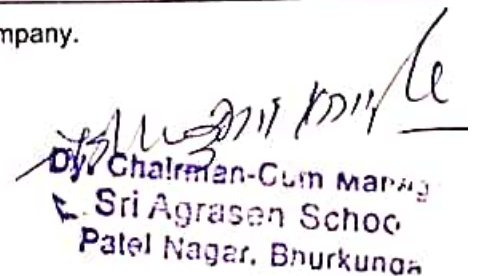 mpany.
Dy. Chairman-Cum Manag
Sri Agrasen Schoo
Patel Nagar, Bhurkunda